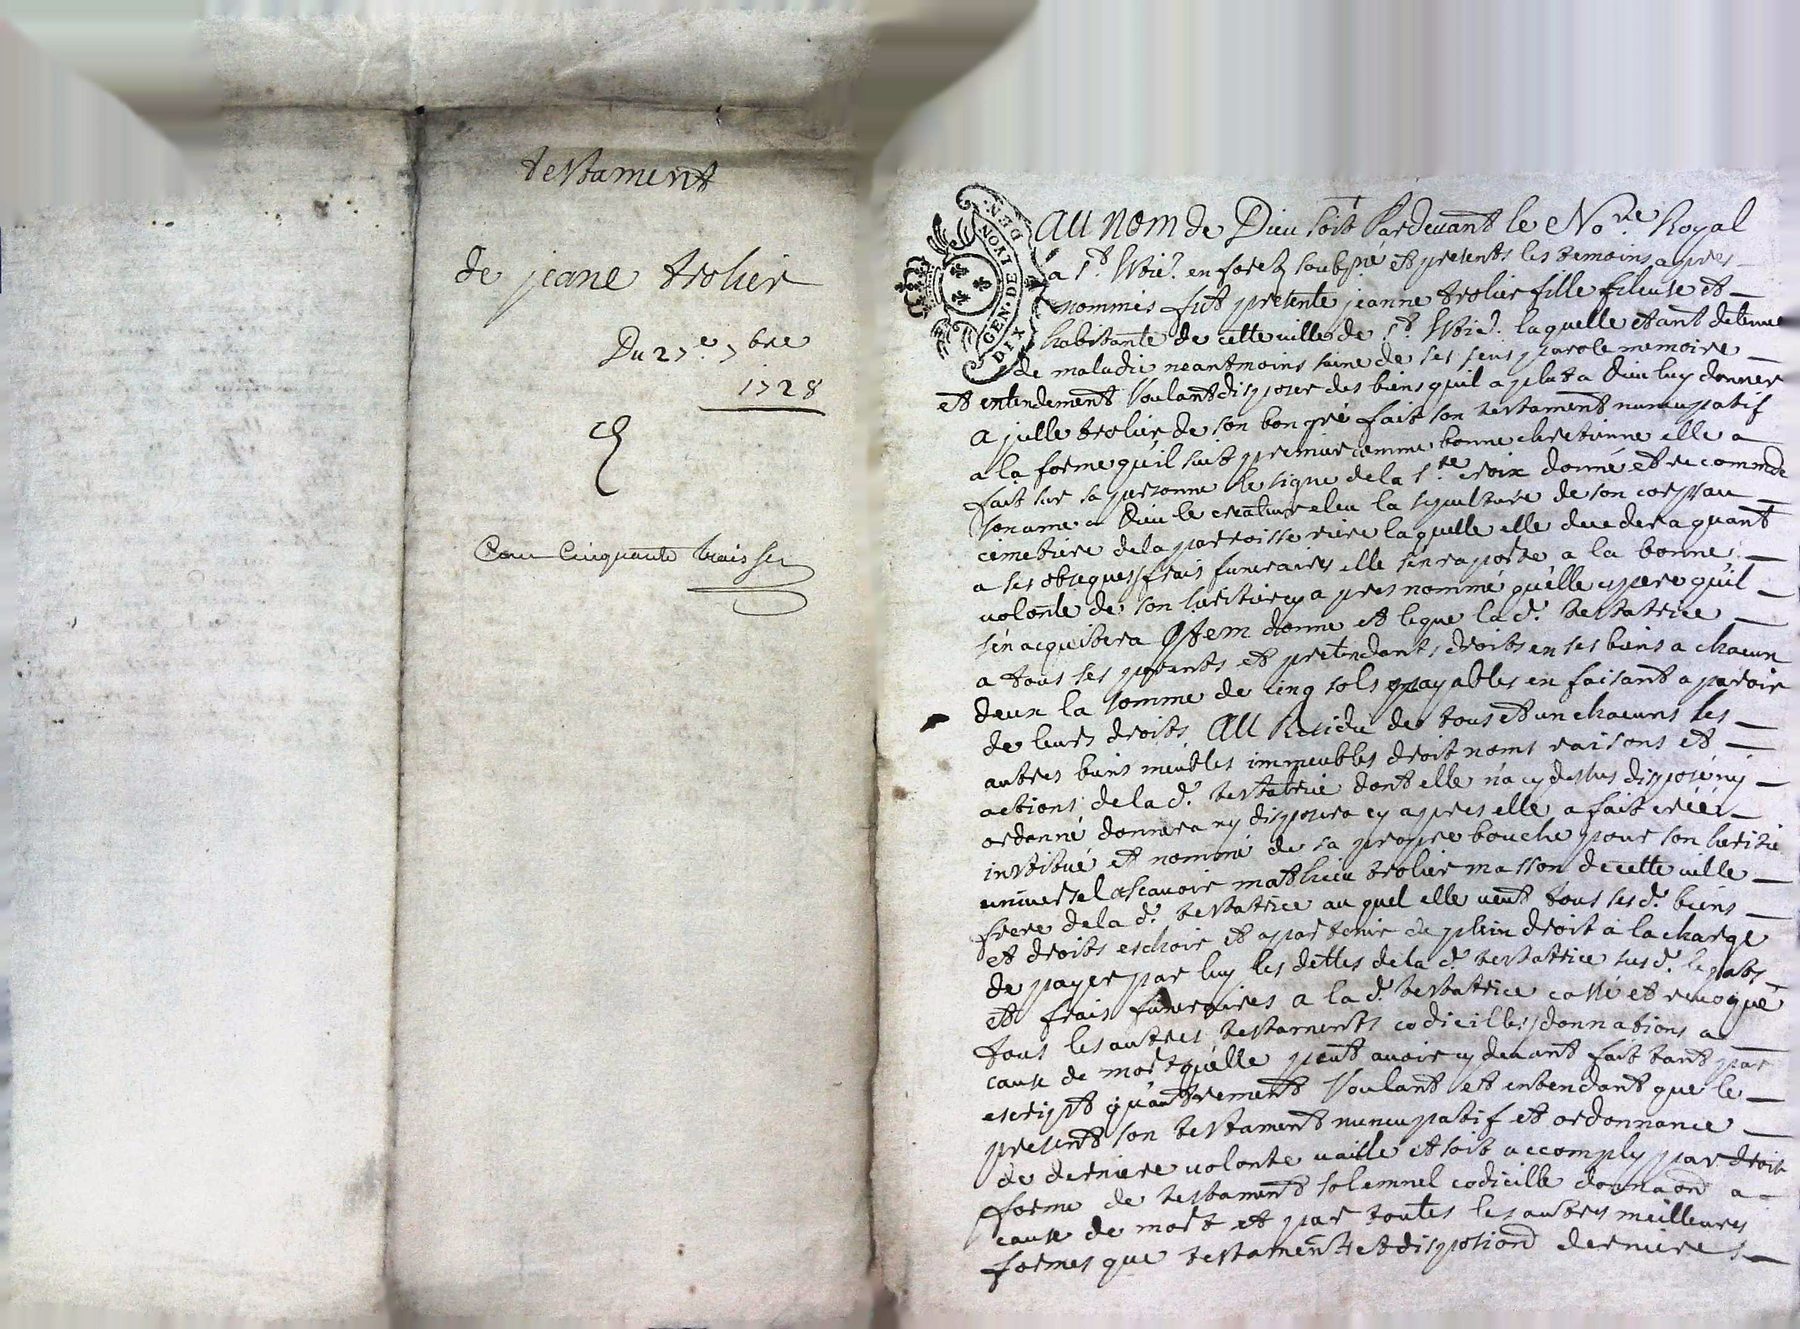 testament
de jeane trolier
Du 27e. 7bre
1728
Cour Cinquante trois
GEN. DE LYON
DEN.
DIX
AU nom de Dieu soit Pardevant le Nore. Royal
a St. en forez soubsné et presents les temoins apres
nommés fut presente jeanne trolier fille fileuse et
habitante de cette ville de St. laquelle etant detenue
de maladie neantmoins saine de ses sens parole memoire
et entendement Voulant disposer des biens quil a plut a Dieu luy donner
a jcelle trolier de son bon gré fait son testament nuncupatif
a la forme qu'il suit premier comme bonne chretienne elle a
fait sur sa personne le signe de la Ste. croix donné et recommdé
son ame a Dieu le createur eleu la sepulture de son corps au
cimetiere de la parroisse riere laquelle elle decedera quant
a ses obseques frais funeraires elle s'en raporte a la bonne
volonté de son heritier cy apres nommé qu'elle espere qu'il
s'en acquittera Jtem donne et legue lad. testatrice
a tous ses parents et pretendants droits en ses biens a chacun
deux la somme de cinq sols payables en faisant aparoir
de leurs droits AU Residu de tous et un chacuns les
autres biens meubles immeubles droit noms raisons et
actions de la d. testatrice dont elle n'a cy dessus disposé ny
ordonné donnera ny disposera cy apres elle a fait créér
institué et nommé de sa propre bouche pour son heritie
universel ascavoir mathieu trolier masson de cette ville
frere de la d. testatrice au quel elle veut tous ses d. biens
et droits eschoir et apartenir de plein droit a la charge
de payer par luy les dettes de la d. testatrice sus d. legats
et frais funeraires a la d. testatrice cassé et revoqué
tous les autres testaments codicilles donnations a
cause de mort qu'elle peut avoir cy devant fait tant par
escript qu'autrement Voulant et entendant que le
present son testament nuncupatif et ordonnance
de derniere volonte vaille et soit accomply par droit
forme de testament solemnel codicille donnaon a
cause de mort et par toutes les autres meilleures
formes que testament et dispotiond dernieres